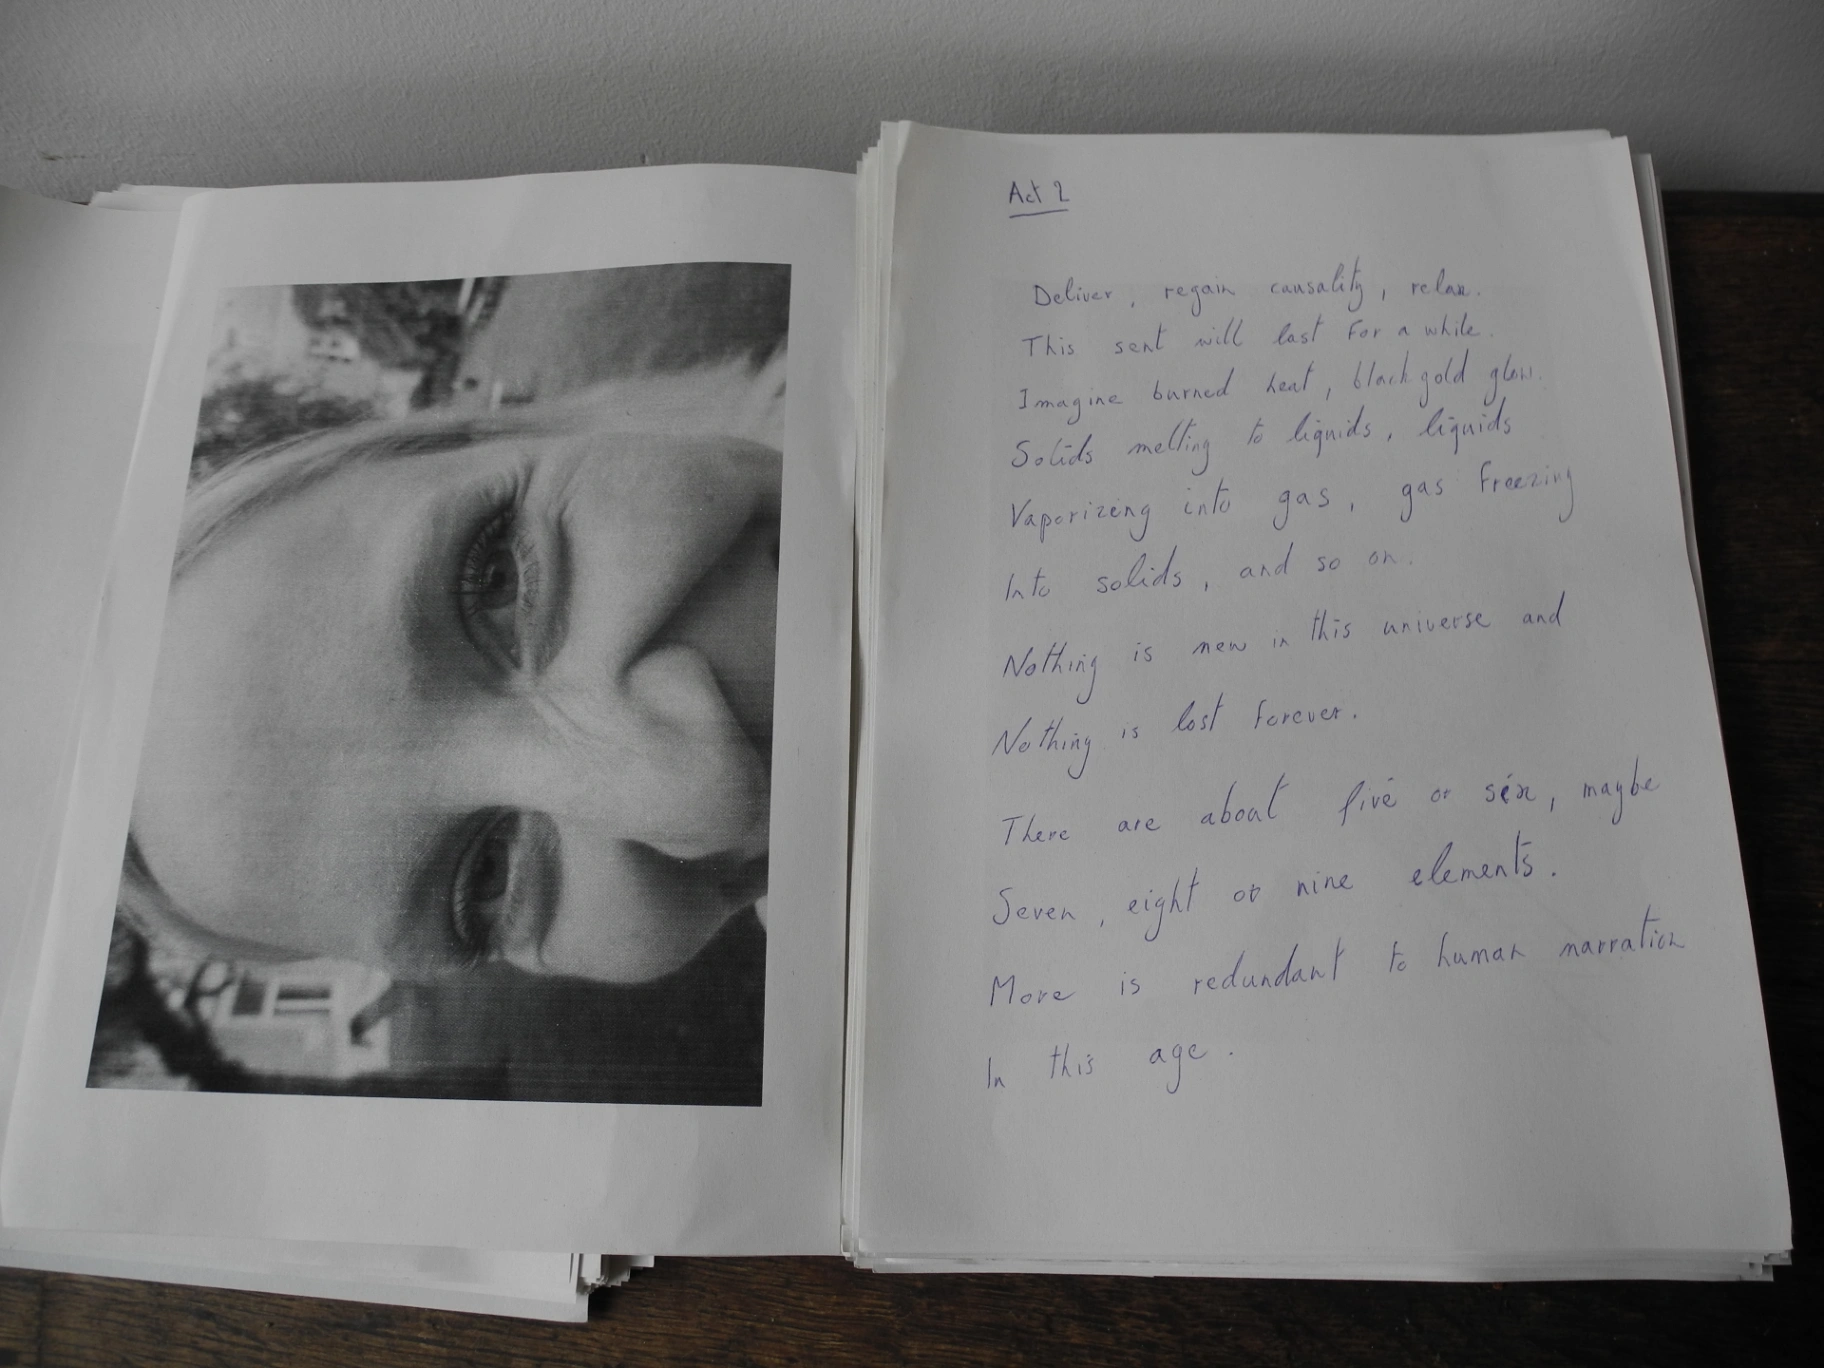 Act 2
Deliver, regain causality, relax.
This sent will last for a while.
Imagine burned heat, black gold glow.
Solids melting to liquids, liquids
Vaporizing into gas, gas freezing
Into solids, and so on.
Nothing is new in this universe and
Nothing is lost forever.
There are about five or six, maybe
Seven, eight or nine elements.
More is redundant to human narration
In this age.